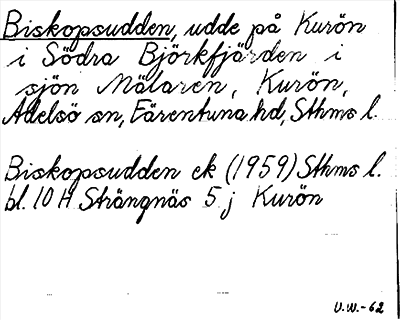 Biskopsudden, udde på Kurön
i Södra Björkfjärden i
sjön Mälaren, Kurön,
Adelsö sn, Färentuna hd, Sthms l.
Biskopsudden ek (1959) Sthms l.
bl. 10 H Strängnäs 5 j Kurön
V.W.-62